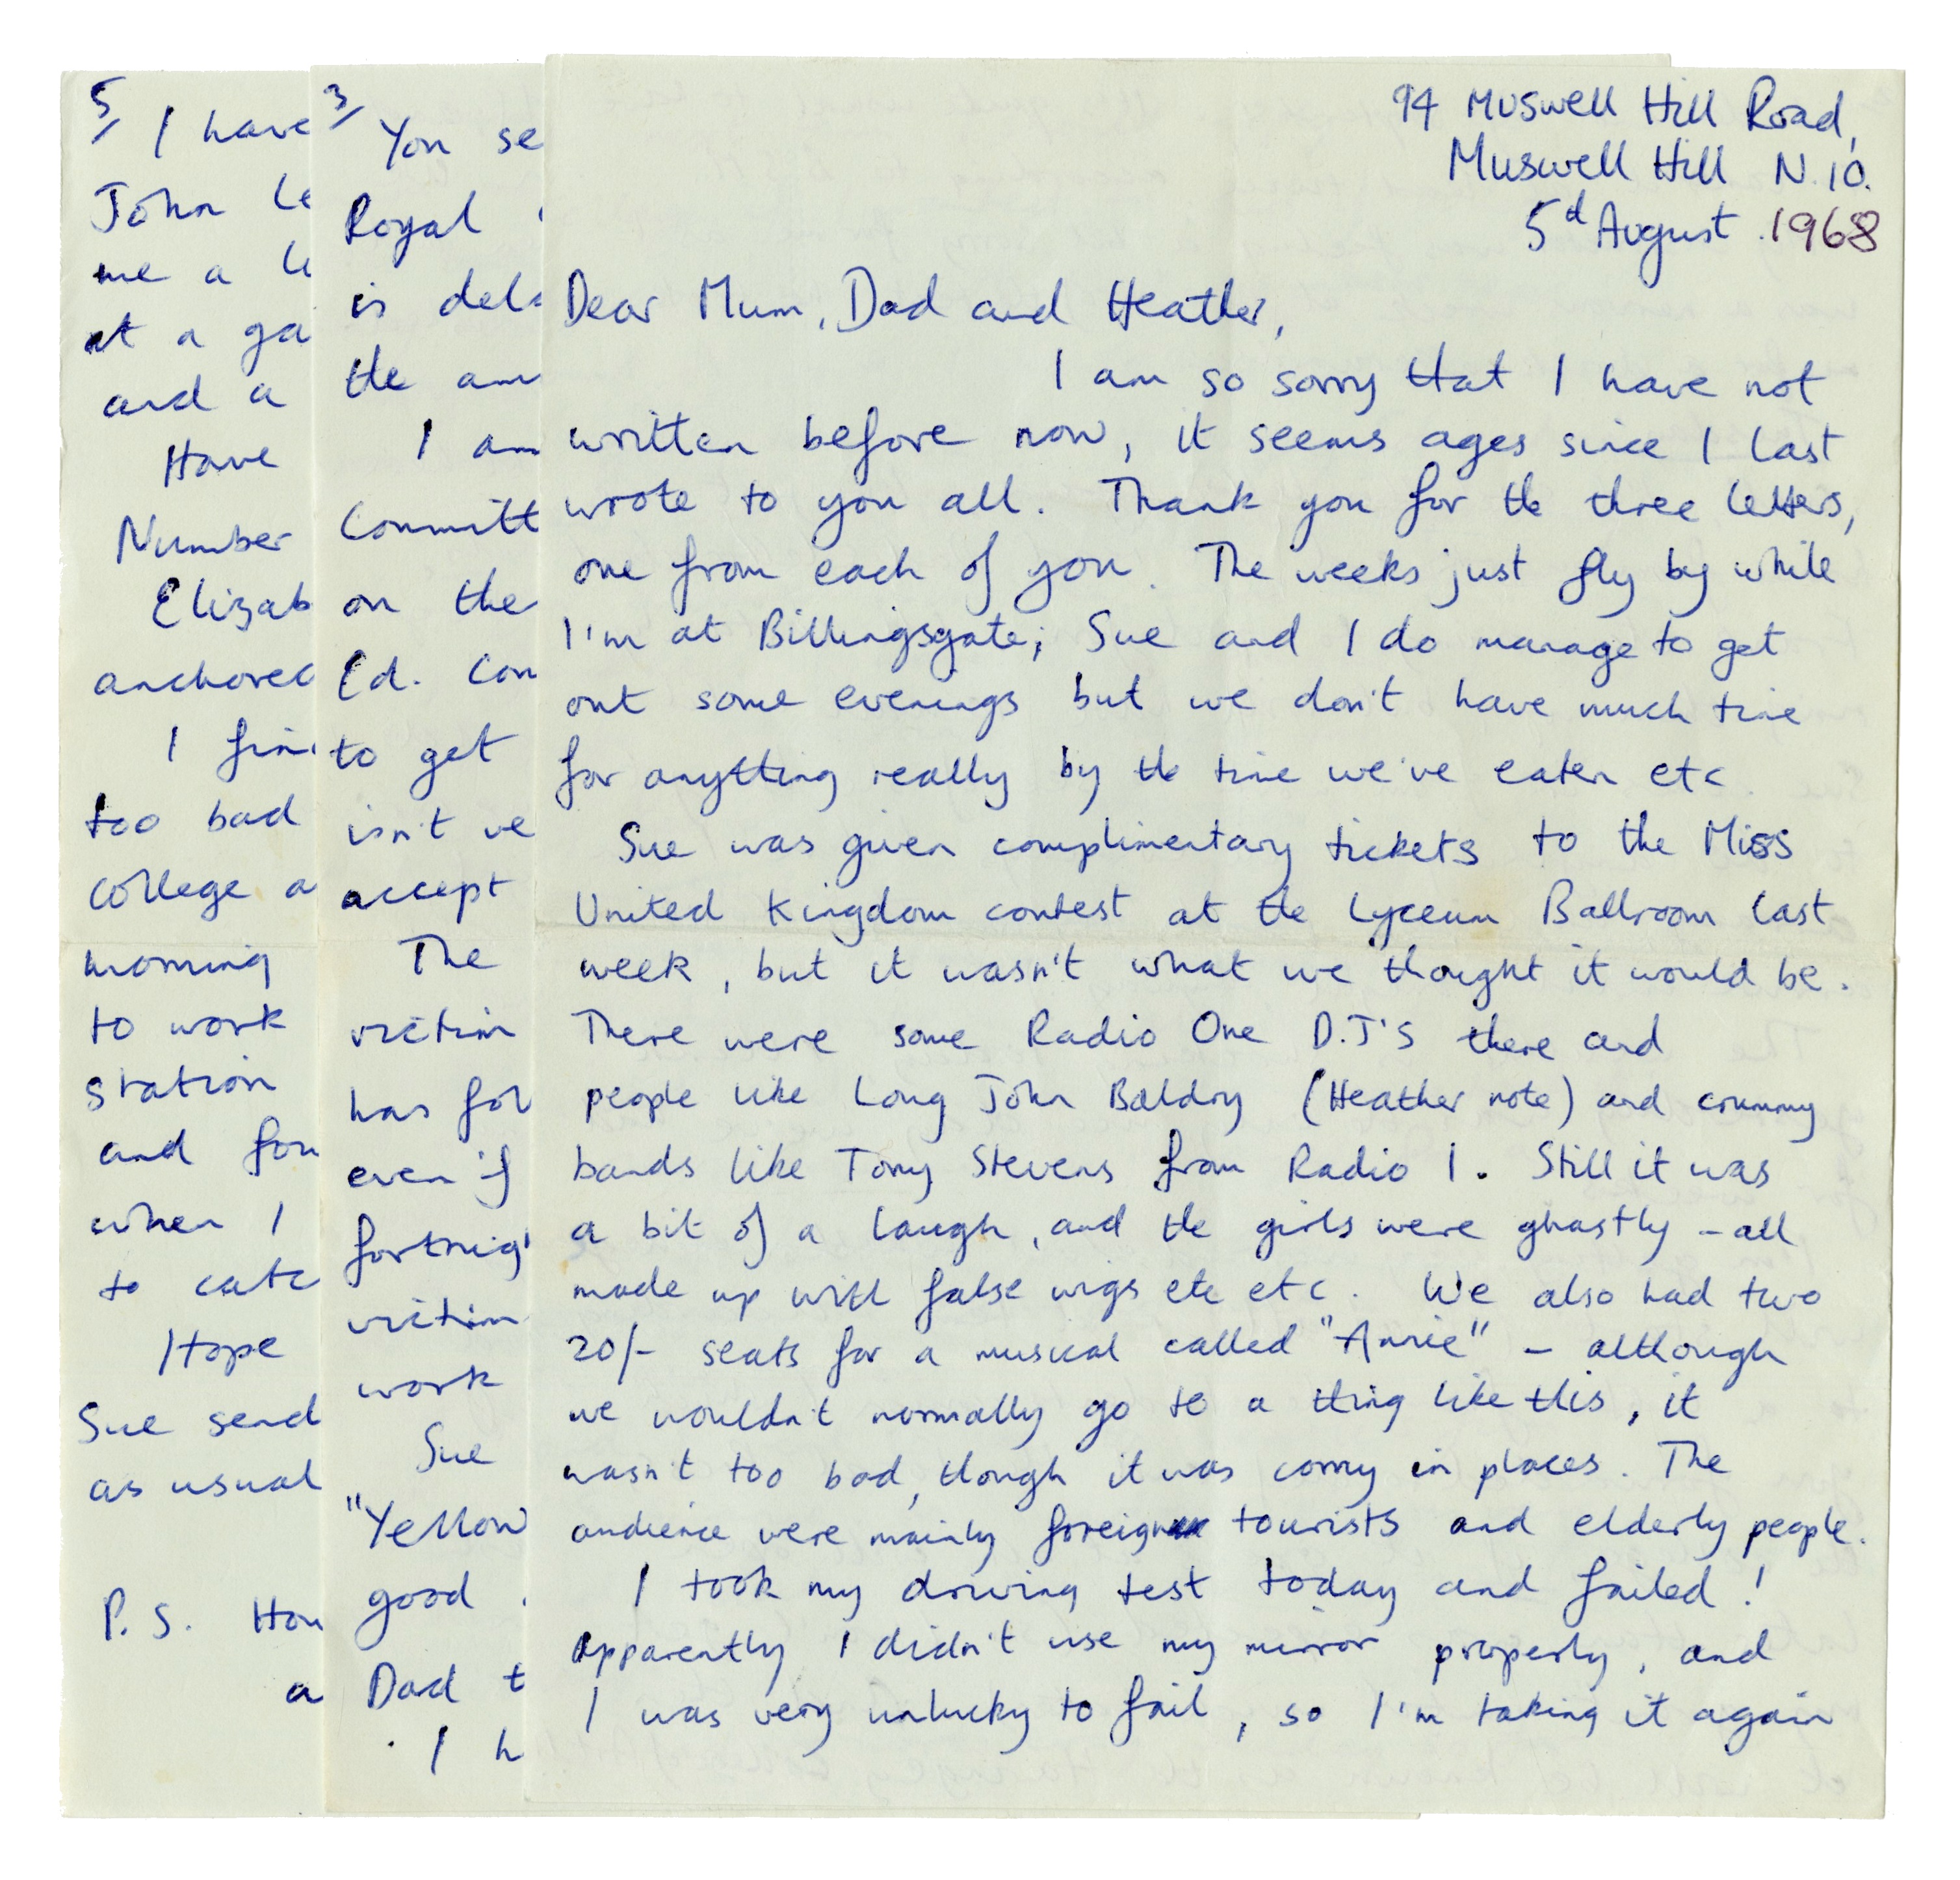 94 Muswell Hill Road,
Muswell Hill N.10.
5d August .1968
Dear Mum, Dad and Heather,
I am so sorry that I have not
written before now, it seems ages since I last
wrote to you all. Thank you for the three letters,
one from each of you. The weeks just fly by while
I'm at Billingsgate; Sue and I do manage to get
out some evenings but we don't have much time
for anything really by the time we've eaten etc
Sue was given complimentary tickets to the Miss
United Kingdom contest at the Lyceum Ballroom last
week, but it wasn't what we thought it would be.
There were some Radio One D.J'S there and
people like Long John Baldry (Heather note) and crummy
bands like Tony Stevens from Radio 1. Still it was
a bit of a laugh, and the girls were ghastly – all
made up with false wigs etc etc. We also had two
20/- seats for a musical called "Annie" – although
we wouldn't normally go to a thing like this, it
wasn't too bad, though it was corny in places. The
audience were mainly foreign tourists and elderly people.
I took my driving test today and failed!
Apparently I didn't use my mirror properly, and
I was very unlucky to fail, so I'm taking it again
3/ You se
Royal
is dela
the am
I am
Committ
on the
Ed. Com
to get
isn't ve
accept
The
victim
has for
even if
fortnig
victim
work
Sue
"Yellow
good
Dad t
. I h
5/ I have
John Le
me a le
at a ga
and a
Have
Number
Elizab
anchored
I fin
too bad
College a
morning
to work
station
and fou
when I
to catc
Hope
Sue send
as usual
P.S. How
a